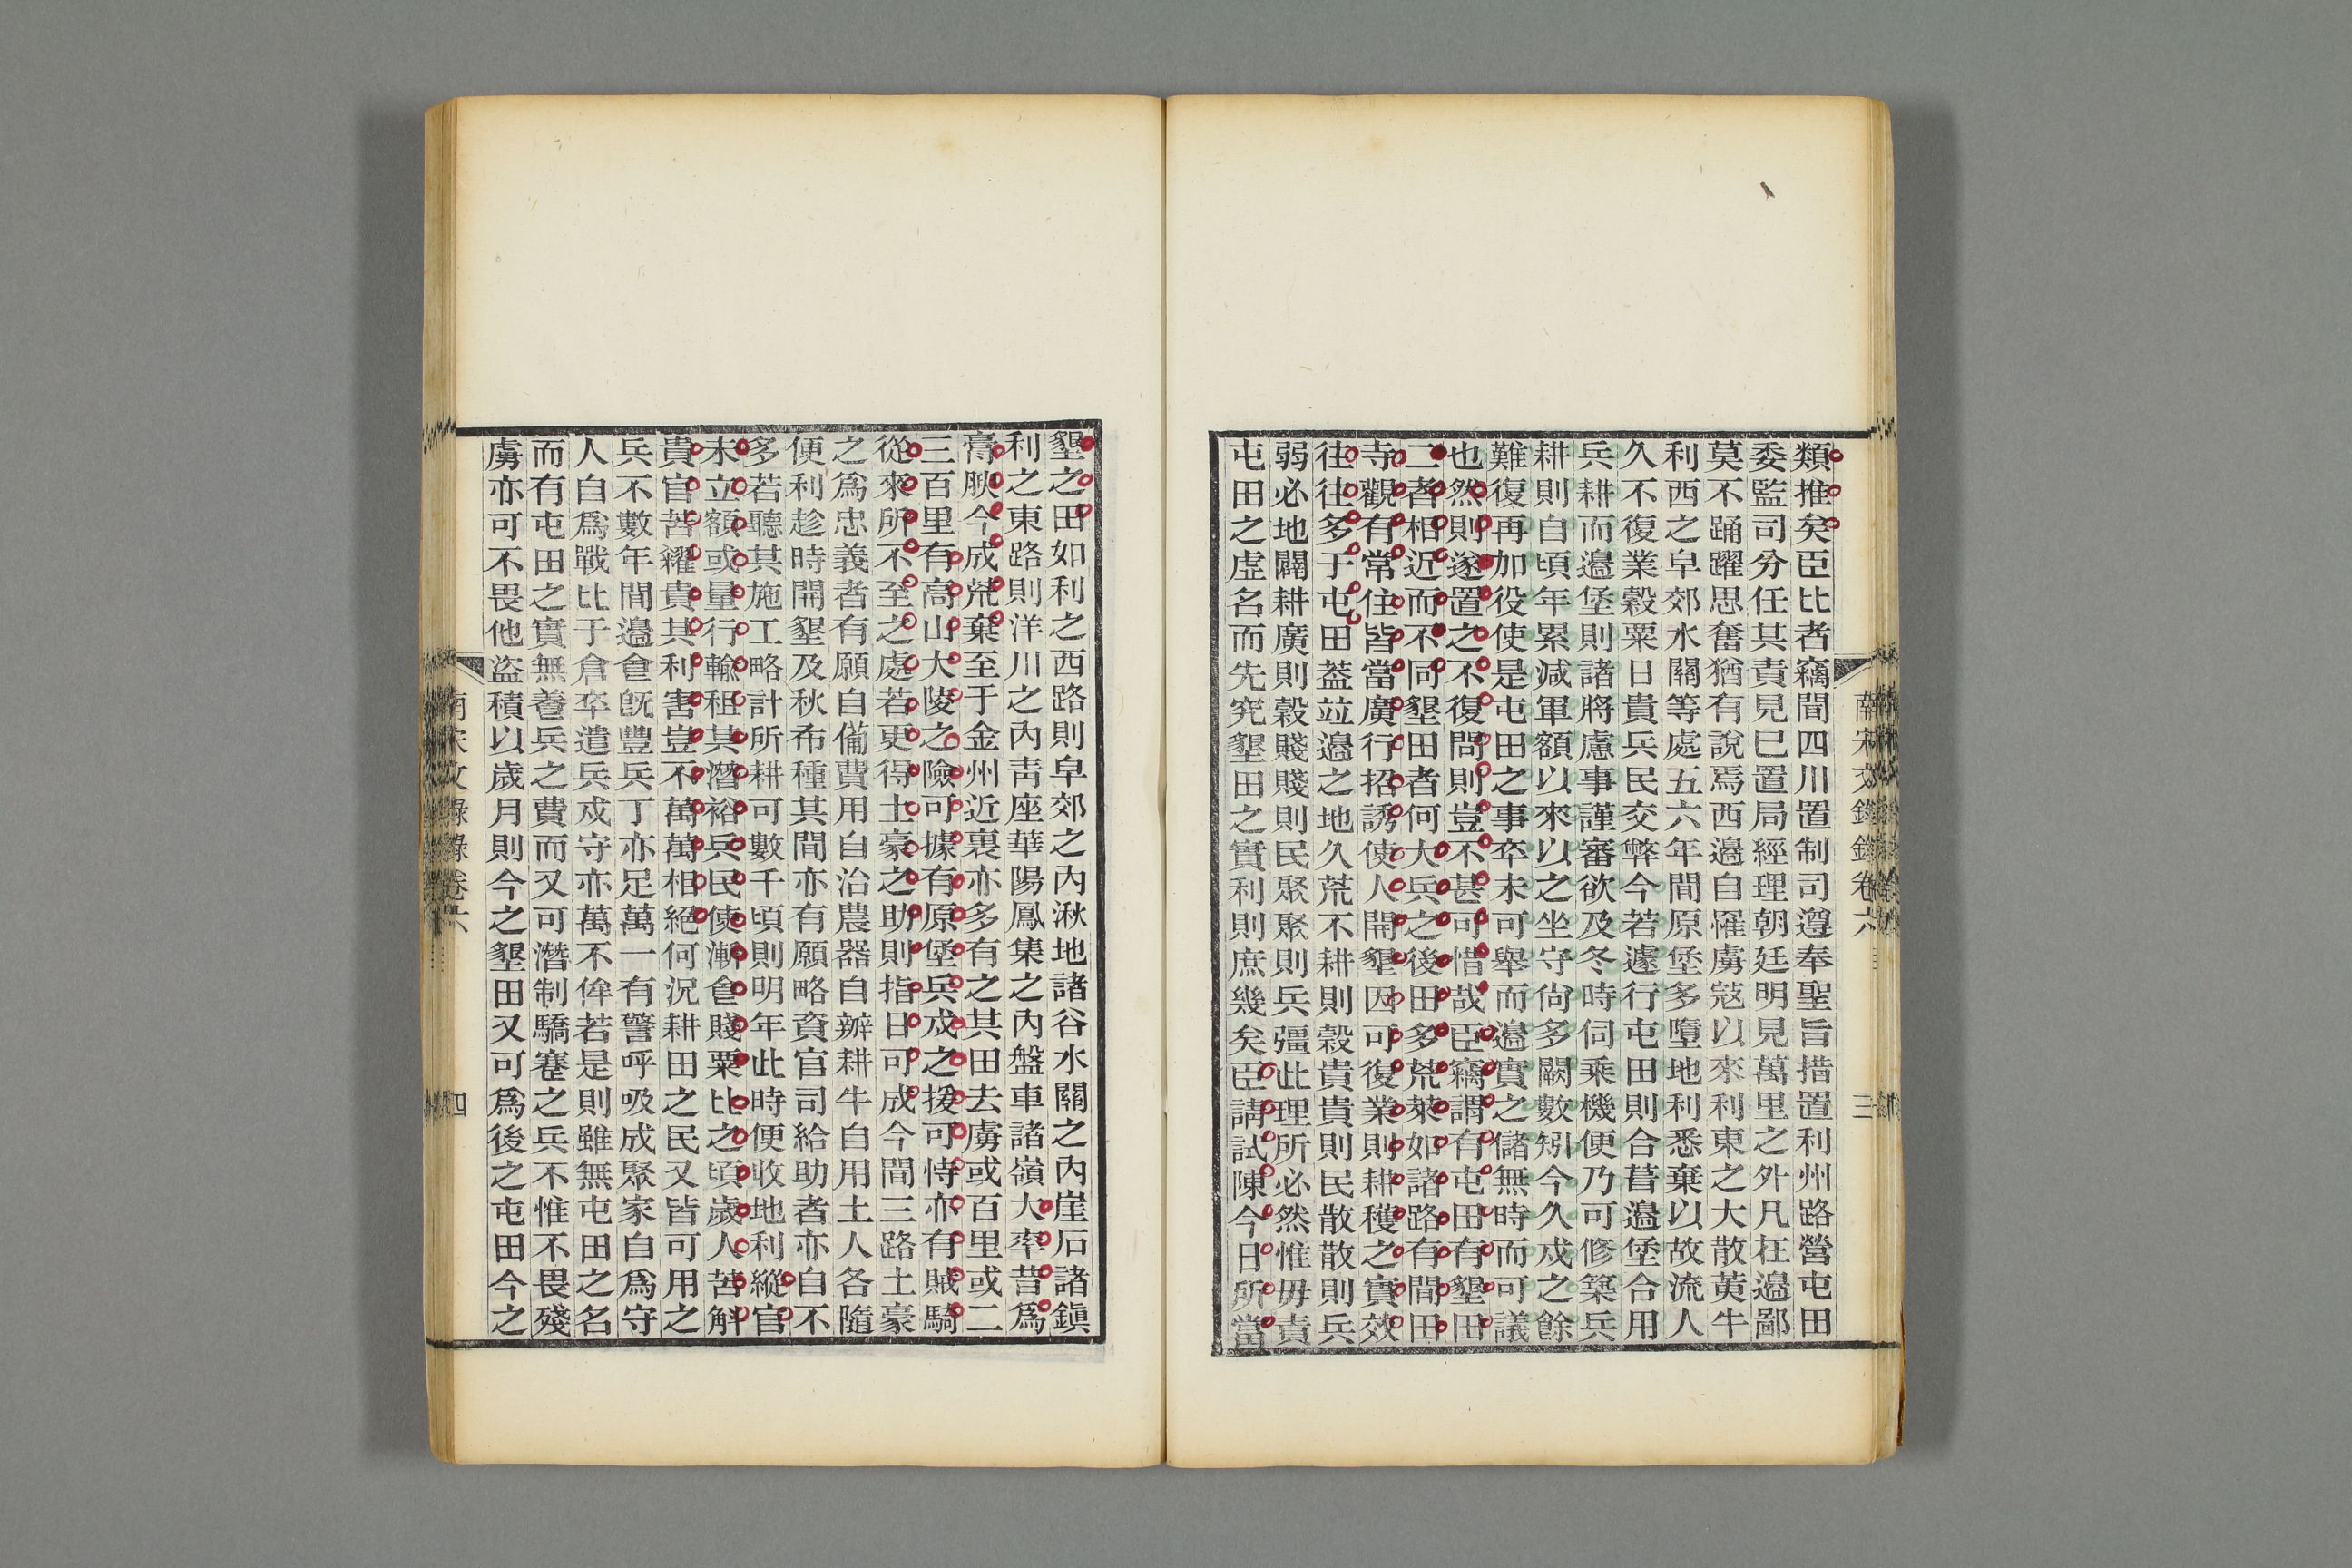 類推矣臣比者竊聞四川置制司遵奉聖旨措置利州路營屯田
委監司分任其責見已置局經理朝廷明見萬里之外凡在邊鄙
莫不踊躍思奮猶有說焉西邊自罹虜寇以來利東之大散黃牛
利西之皁郊水關等處五六年間原堡多墮地利悉棄以故流人
久不復業穀粟日貴兵民交弊今若遽行屯田則合葺邊堡合用
兵耕而邊堡則諸將慮事謹審欲及冬時伺乘機便乃可修築兵
耕則自頃年累減軍額以來以之坐守尙多闕數矧今久戍之餘
難復再加役使是屯田之事卒未可舉而邊實之儲無時而可議
也然則遂置之不復問則豈不甚可惜哉臣竊謂有屯田有墾田
二者相近而不同墾田者何大兵之後田多荒萊如諸路有閒田
寺觀有常住皆當廣行招誘使人開墾因可復業則耕穫之實效
往往多于屯田葢竝邊之地久荒不耕則穀貴貴則民散散則兵
弱必地闢耕廣則穀賤賤則民聚聚則兵彊此理所必然惟毋責
屯田之虛名而先究墾田之實利則庶幾矣臣請試陳今日所當
南宋文錄錄卷六
三
墾之田如利之西路則皁郊之內湫地諸谷水關之內崖石諸鎭
利之東路則洋川之內靑座華陽鳳集之內盤車諸嶺大率昔爲
膏腴今成荒棄至于金州近裏亦多有之其田去虜或百里或二
三百里有高山大陵之險可據有原堡兵戍之援可恃亦有賊騎
從來所不至之處若更得土豪之助則指日可成今聞三路土豪
之爲忠義者有願自備費用自治農器自辦耕牛自用土人各隨
便利趁時開墾及秋布種其間亦有願略資官司給助者亦自不
多若聽其施工略計所耕可數千頃則明年此時便收地利縱官
未立額或量行輸租其潛裕兵民使漸會賤粟比之頃歲人苦斛
貴官苦糴貴其利害豈不萬萬相絕何況耕田之民又皆可用之
兵不數年間邊會旣豐兵丁亦足萬一有警呼吸成聚家自爲守
人自爲戰比于倉卒遣兵戍守亦萬不侔若是則雖無屯田之名
而有屯田之實無養兵之費而又可潛制驕蹇之兵不惟不畏殘
虜亦可不畏他盜積以歲月則今之墾田又可爲後之屯田今之
南宋文錄錄卷六
四